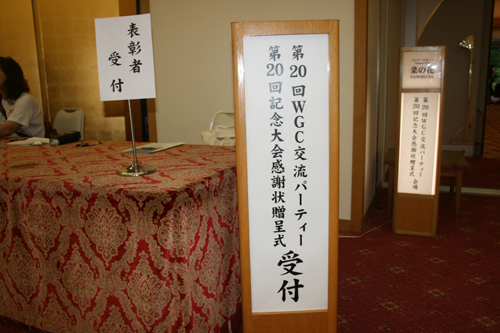 表彰者
受付
第20回WGC交流パーティー
第20回記念大会感謝状贈呈式
受付
菜の花
NANOHANA
第20回WGC交流パーティー
第20回記念大会感謝状贈呈式 会場